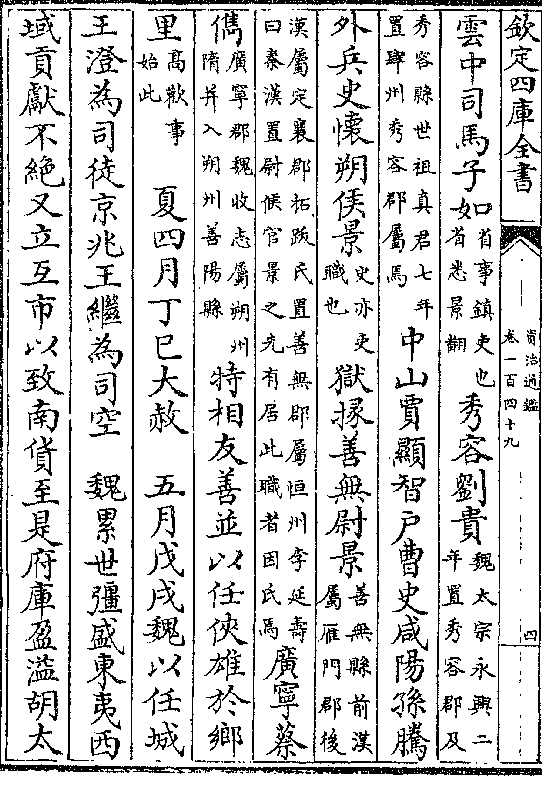 欽定四庫全書
資治通鑑
卷一百四十九
四
雲中司馬子如省事鎮吏也省悉景翻秀容劉貴魏太宗永興二年置秀容郡及
秀容縣世祖真君七年置肆州秀容郡屬焉中山賈顯智户曹史咸陽孫騰
外兵史懷朔侯景史亦吏職也獄掾善無尉景善無縣前漢屬雁門郡後
漢屬定襄郡拓跋氏置善無郡屬恒州李延壽曰秦漢置尉候官景之先有居此職者因氏焉廣寧蔡
儁廣寧郡魏收志屬朔州隋并入朔州善陽縣特相友善並以任俠雄於鄉
里高歡事始此 夏四月丁巳大赦 五月戊戌魏以任城
王澄為司徒京兆王繼為司空 魏累世彊盛東夷西
域貢獻不絶又立互市以致南貨至是府庫盈溢胡太